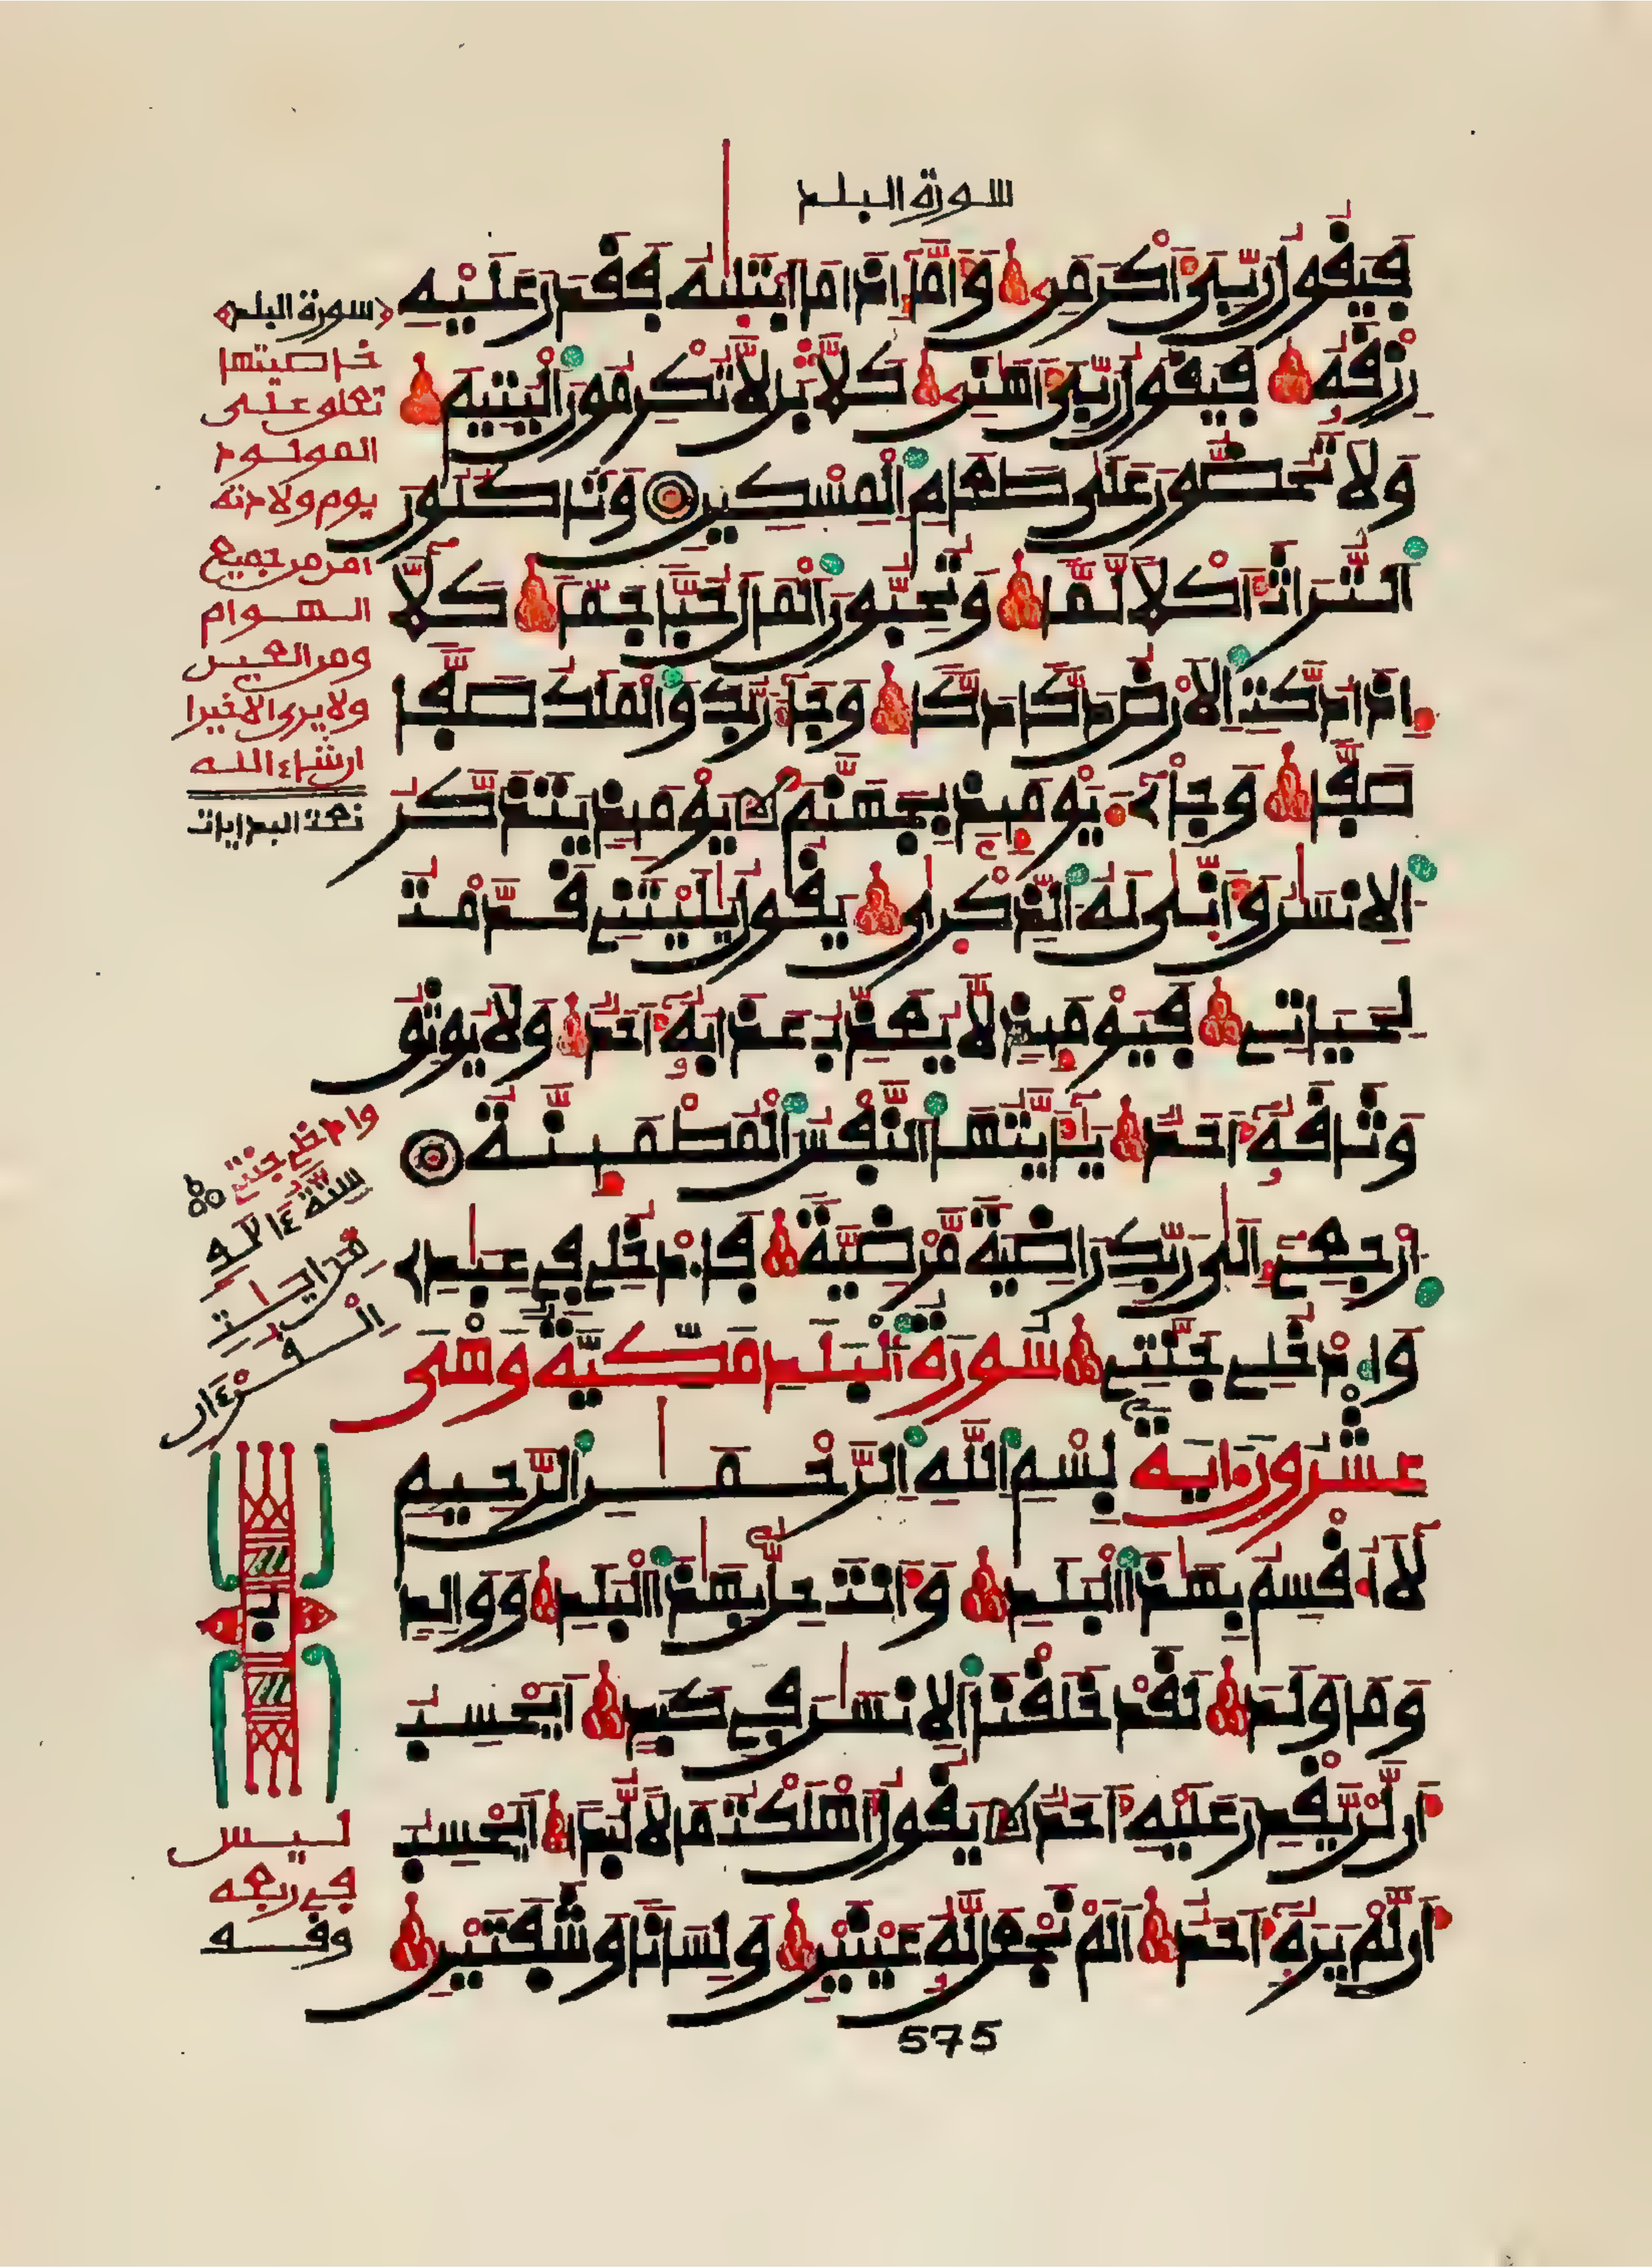 سورة البلد
فَيَقُولُ رَبِّيَ أَكْرَمَنِ وَأَمَّا إِذَا مَا ابْتَلَيٰهُ فَقَدَرَ عَلَيْهِ
رِزْقَهُ فَيَقُولُ رَبِّيَ أَهَٰنَنِ كَلَّا بَل لَّا تُكْرِمُونَ الْيَتِيمَ
وَلَا تَحُضُّونَ عَلَىٰ طَعَامِ الْمِسْكِينِ وَتَاكُلُونَ
التُّرَاثَ أَكْلًا لَّمًّا وَتُحِبُّونَ الْمَالَ حُبًّا جَمًّا كَلَّا
إِذَا دُكَّتِ الْأَرْضُ دَكًّا دَكًّا وَجَاءَ رَبُّكَ وَالْمَلَكُ صَفًّا
صَفًّا وَجِاْيٓءَ يَوْمَئِذٍ بِجَهَنَّمَ يَوْمَئِذٍ يَتَذَكَّرُ
الْإِنسَٰنُ وَأَنَّىٰ لَهُ الذِّكْرَىٰ يَقُولُ يَٰلَيْتَنِي قَدَّمْتُ
لِحَيَاتِي فَيَوْمَئِذٍ لَّا يُعَذِّبُ عَذَابَهُ أَحَدٌ وَلَا يُوثِقُ
وَثَاقَهُ أَحَدٌ يَٰأَيَّتُهَا النَّفْسُ الْمُطْمَئِنَّةُ
ارْجِعِي إِلَىٰ رَبِّكِ رَاضِيَةً مَّرْضِيَّةً فَادْخُلِي فِي عِبَٰدِي
وَادْخُلِي جَنَّتِي سُورَةُ الْبَلَدِ مَكِّيَّةٌ وَهْيَ
عِشْرُونَ ءَايَةً بِسْمِ اللَّهِ الرَّحْمَٰنِ الرَّحِيمِ
لَا أُقْسِمُ بِهَٰذَا الْبَلَدِ وَأَنتَ حِلٌّ بِهَٰذَا الْبَلَدِ وَوَالِدٍ
وَمَا وَلَدَ لَقَدْ خَلَقْنَا الْإِنسَٰنَ فِي كَبَدٍ أَيَحْسِبُ
أَن لَّن يَّقْدِرَ عَلَيْهِ أَحَدٌ يَقُولُ أَهْلَكْتُ مَالًا لُّبَدًا أَيَحْسِبُ
أَن لَّمْ يَرَهُ أَحَدٌ أَلَمْ نَجْعَل لَّهُ عَيْنَيْنِ وَلِسَانًا وَشَفَتَيْنِ
575
سورة البلد
خاصيتها
تعلق على
المولود
يوم ولادته
امن من جميع
الهوام
ومن العين
ولا يرى الا خيرا
ان شاء الله
وادخلي جنتي
القرءان
ليس
في ربعه
وقف